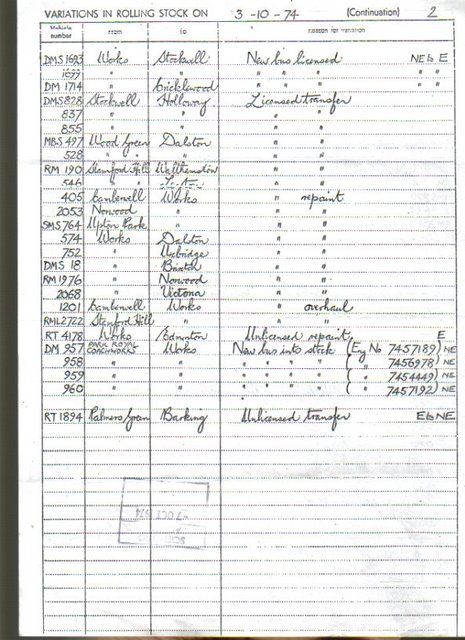 VARIATIONS IN ROLLING STOCK ON 3-10-74 (Continuation) 2
Vehicle number From To Reason for variation
DMS 1693 Works Stockwell New bus licensed NE to E
1699 " " " " " " "
DM 1714 " Cricklewood " " " " "
DMS 828 Stockwell Holloway Licensed transfer
837 " " " "
855 " " " "
MBS 497 Wood Green Dalston " "
528 " " " " "
RM 190 Stamford Hill Walthamstow " "
546 " " " "
405 Camberwell Works " repaint
2053 Norwood " " "
SMS 764 Upton Park " " "
574 Works Dalston " "
752 " Uxbridge " "
DMS 18 " Brixton " "
RM 1976 " Norwood " "
2068 " Victoria " "
1201 Camberwell Works " overhaul
RML 2722 Stamford Hill " " "
RT 4178 Works Edmonton Unlicensed repaint E
DM 957 PARK ROYAL COACHWORKS Works New bus into stock (Eng No 7457189) NE
958 " " " " " " ( " 7456978) NE
959 " " " " " " ( " 7454449) NE
960 " " " " " " ( " 7457192) NE
RT 1894 Palmers Green Barking Unlicensed transfer E to NE
-7 OCT 1974